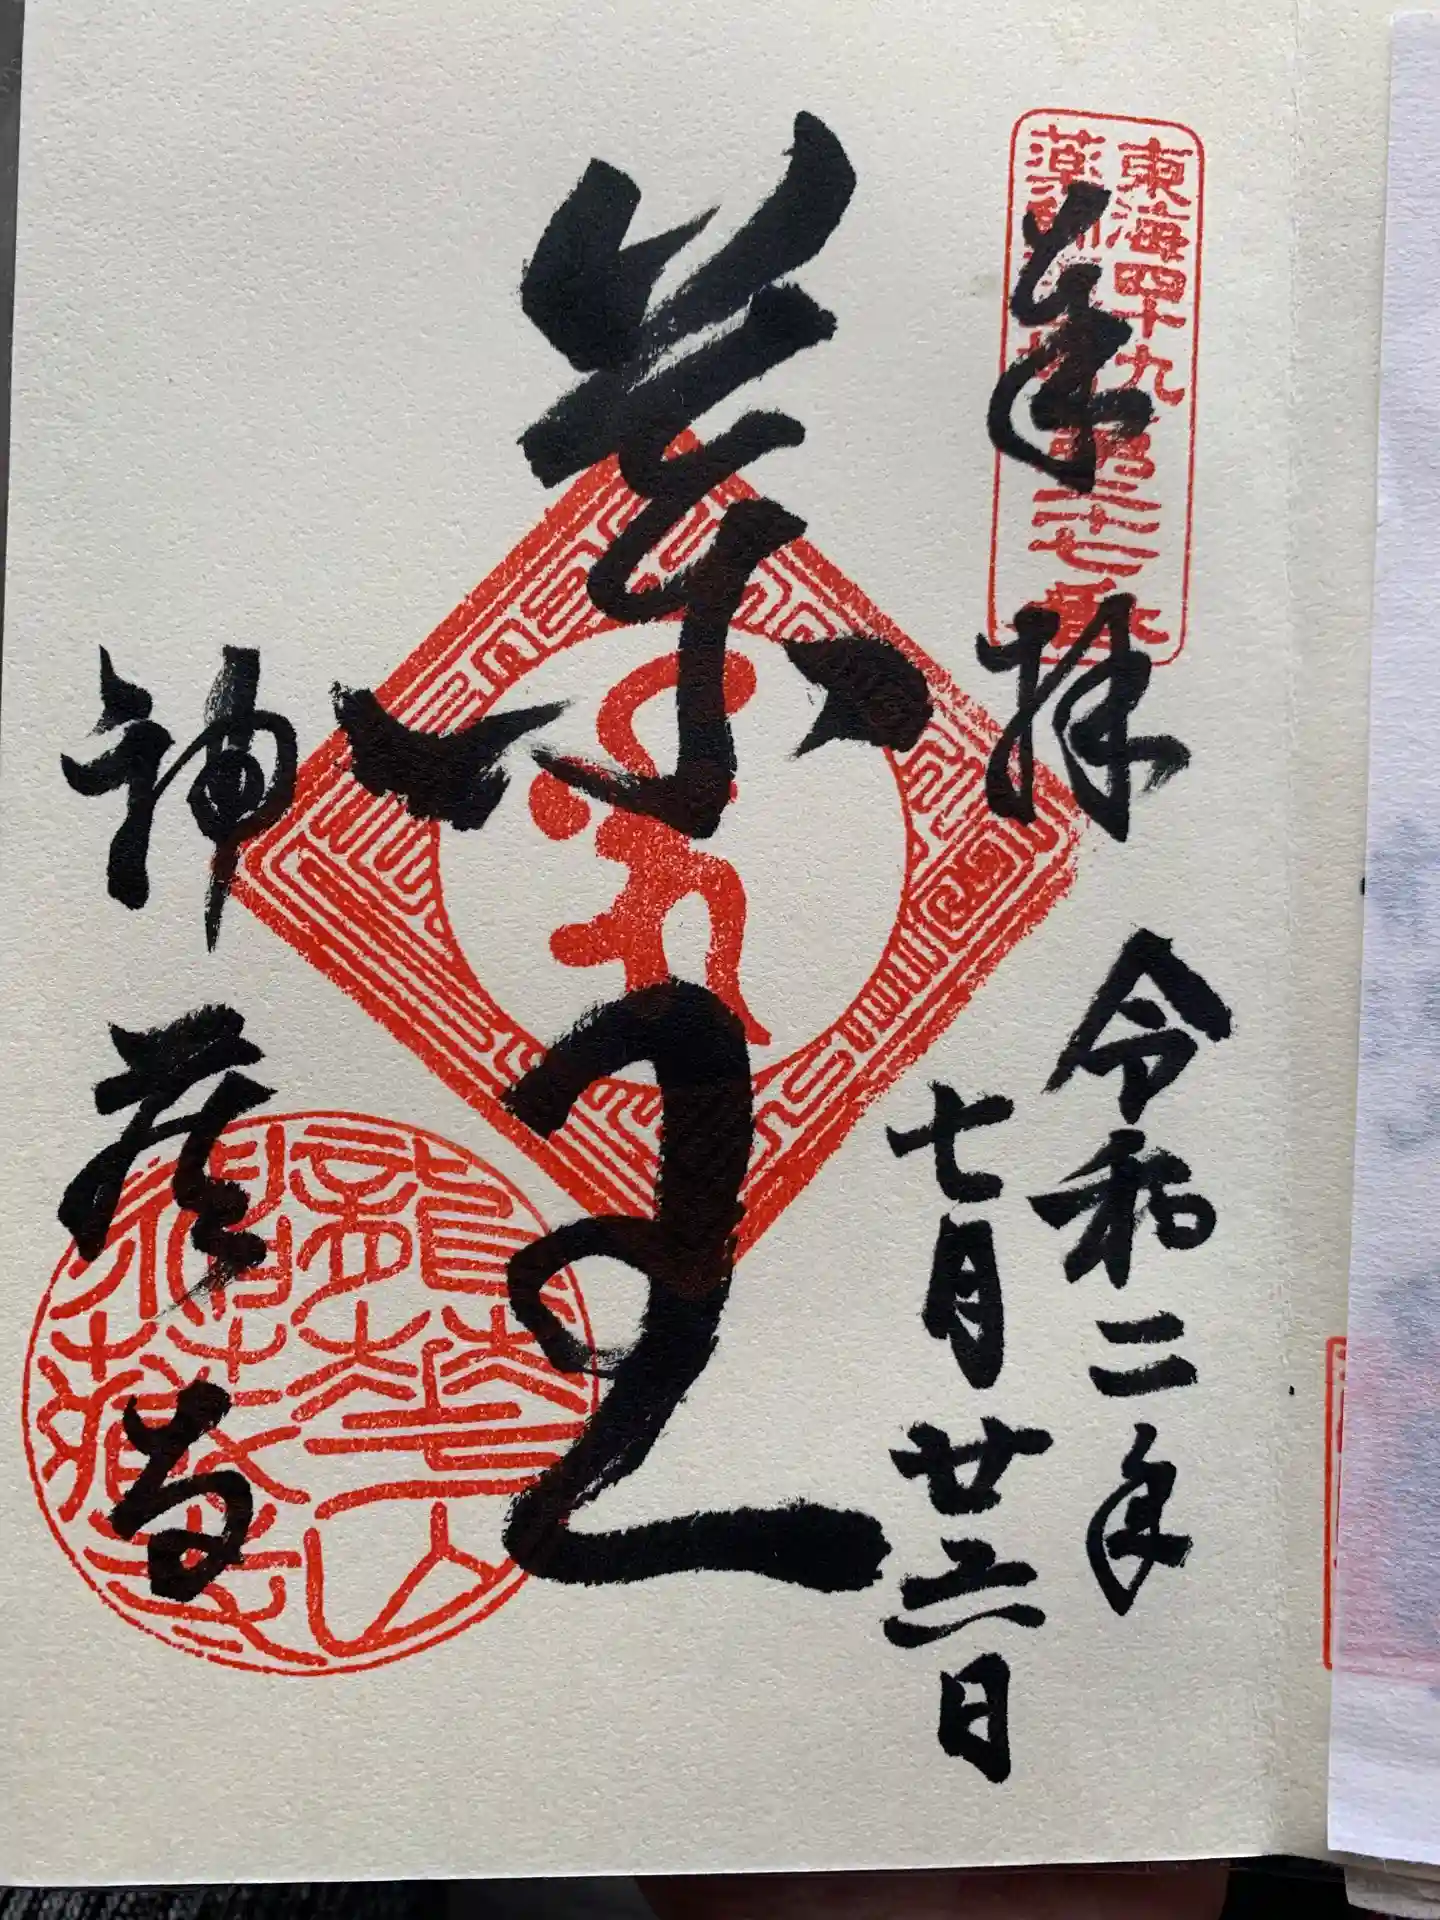 東海四十九
薬師
七番
奉拝
令和二年
七月廿
日
薬王
神蔵寺
龍華山
神蔵寺